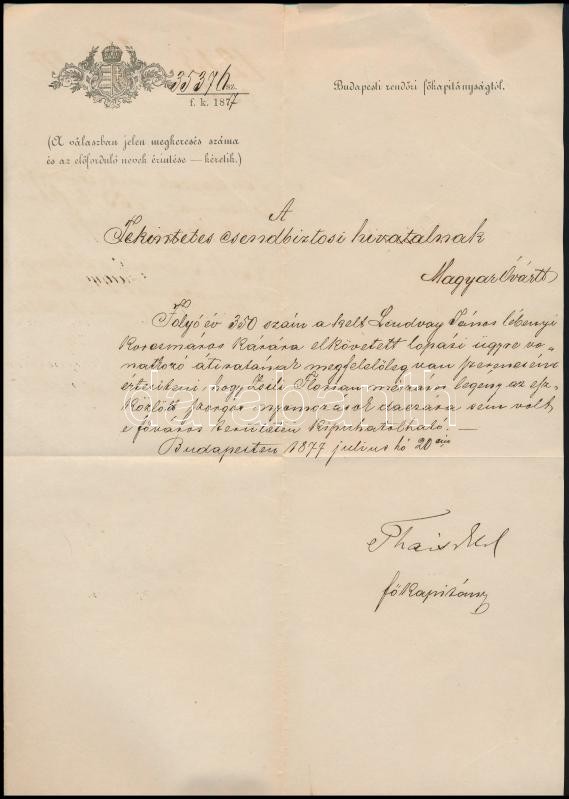 35376 sz.
f. k. 1877
Budapesti rendőri főkapitányságtól.
(A válaszban jelen megkeresés száma
és az előforduló nevek érintése — kéretik.)
A
Tekintetes csendbiztosi hivatalnak
Magyar Óvártt
Folyó év 350 szám a kelt Lendvay János lébenyi
korcsmáros kárára elkövetett lopási ügyre vo„
natkozó átiratának megfelelőleg van szerencsém
értesíteni hogy Florian mészáros legény az esz„
közlött szorgos nyomozások daczára sem volt
e főváros területén kipuhatolható. —
Budapesten 1877 julius hó 20 án
Thaisz Elek
főkapitány
darabanth